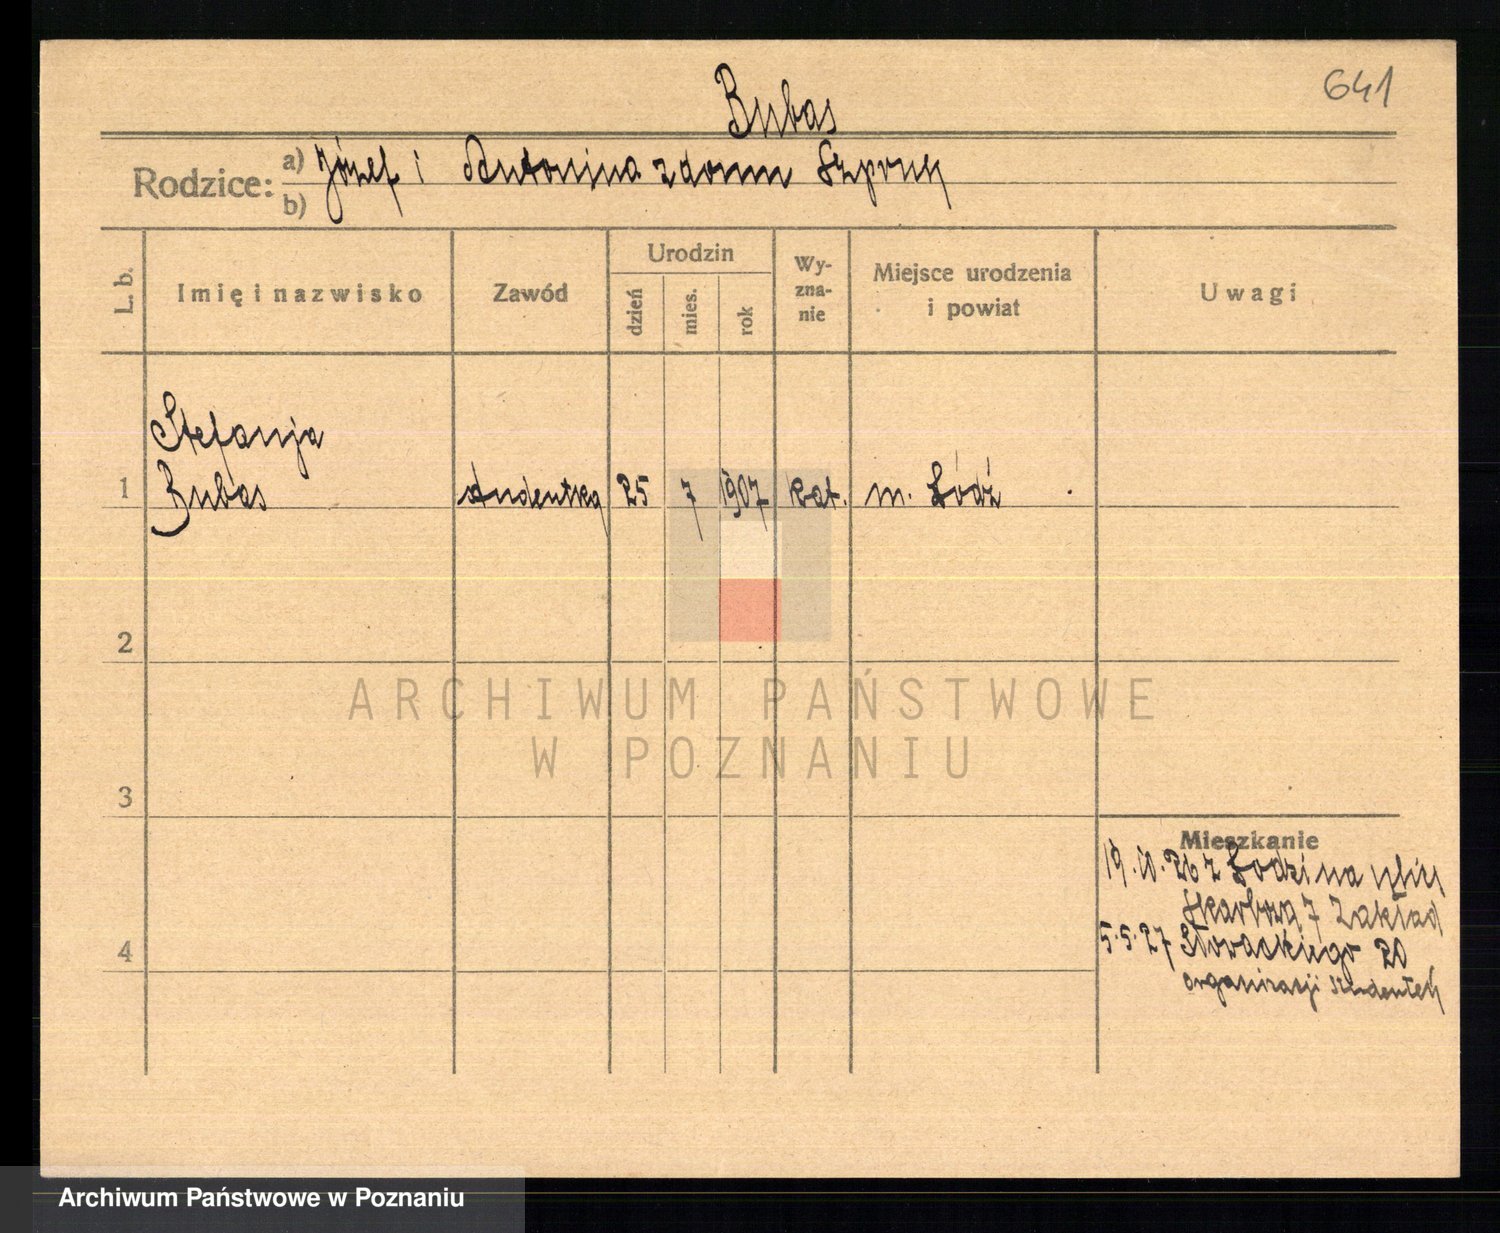 641
Bubas
Rodzice: a) Józef i Antonina z domu
b)
L. b.
Imię i nazwisko
Zawód
Urodzin
dzień
mies.
rok
Wy-
zna-
nie
Miejsce urodzenia
i powiat
Uwagi
Stefanja
1 Bubas studentka 25 7 1907 kat. m. Łódź
2
ARCHIWUM PAŃSTWOWE
W POZNANIU
3
Mieszkanie
19. 26 z Łodzi na
7 Zakład
4
5.5.27 Słowackiego 20
organizacji
Archiwum Państwowe w Poznaniu